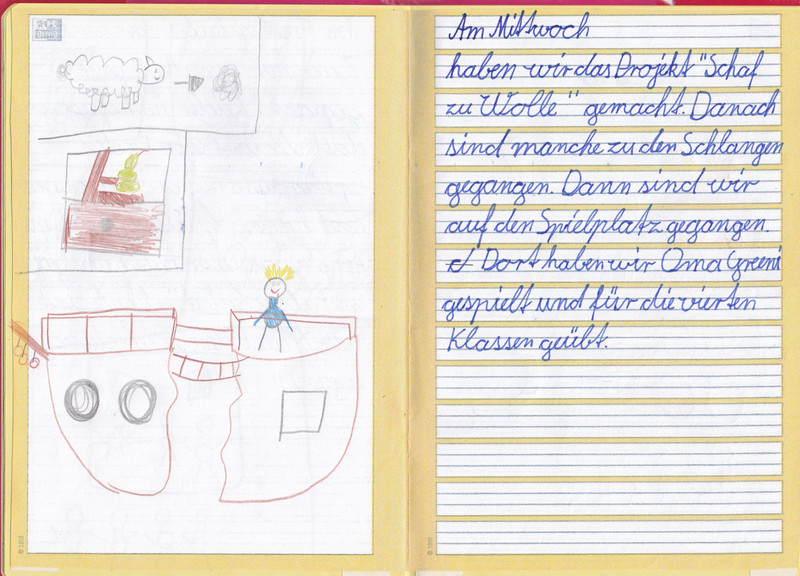 Am Mittwoch
haben wir das Projekt "Schaf
zu Wolle" gemacht. Danach
sind manche zu den Schlangen
gegangen. Dann sind wir
auf den Spielplatz gegangen.
Dort haben wir Oma Greeni
gespielt und für die vierten
Klassen geübt.